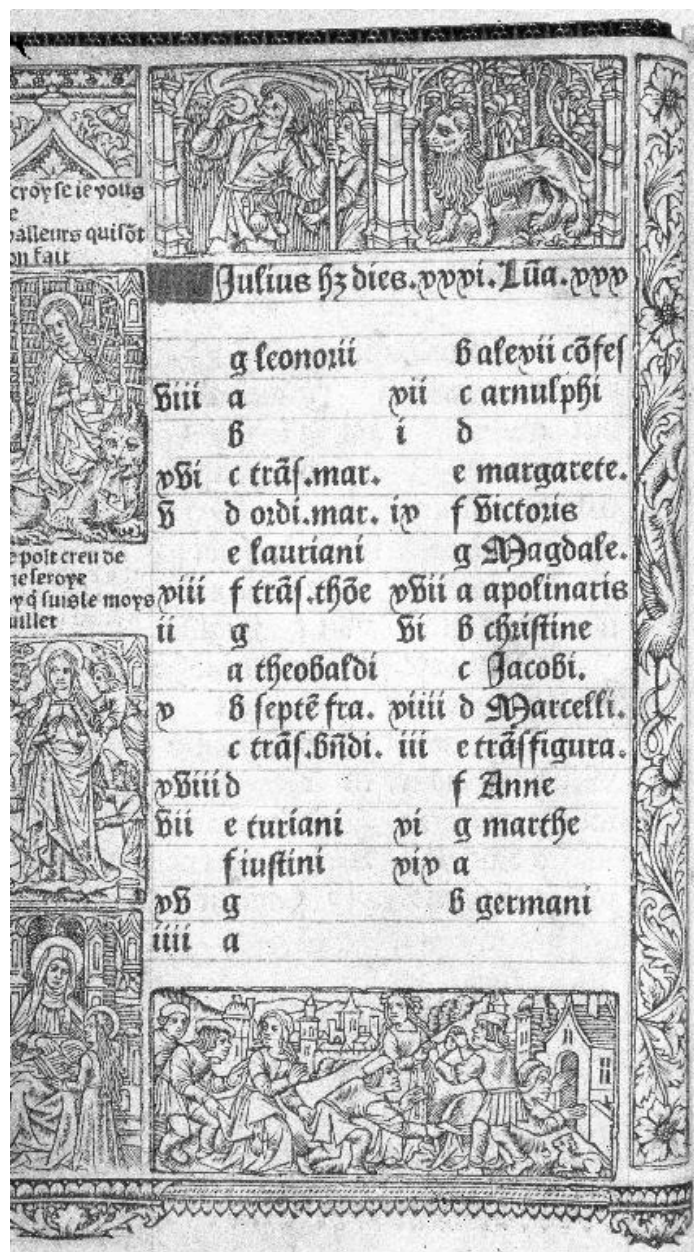 croy se ie vous
e
vailleurs qui sõt
on fait
e polt creu de
ie seroye
y q̃ suis le moys
uillet
Julius hꝫ dies.xxxi.Lũa.xxx
g leonorii
viii a
b
xvi c trãs.mar.
v d ordi.mar.
e lauriani
xiii f trãs.thõe
ii g
a theobaldi
x b septẽ fra.
c trãs.bñdi.
xviii d
vii e turiani
f iustini
xv g
iiii a
b alexii cõfes
xii c arnulphi
i d
e margarete.
ix f victoris
g Magdale.
xvii a apolinaris
vi b christine
c Jacobi.
xiiii d Marcelli.
iii e trãsfigura.
f Anne
xi g marthe
xix a
b germani